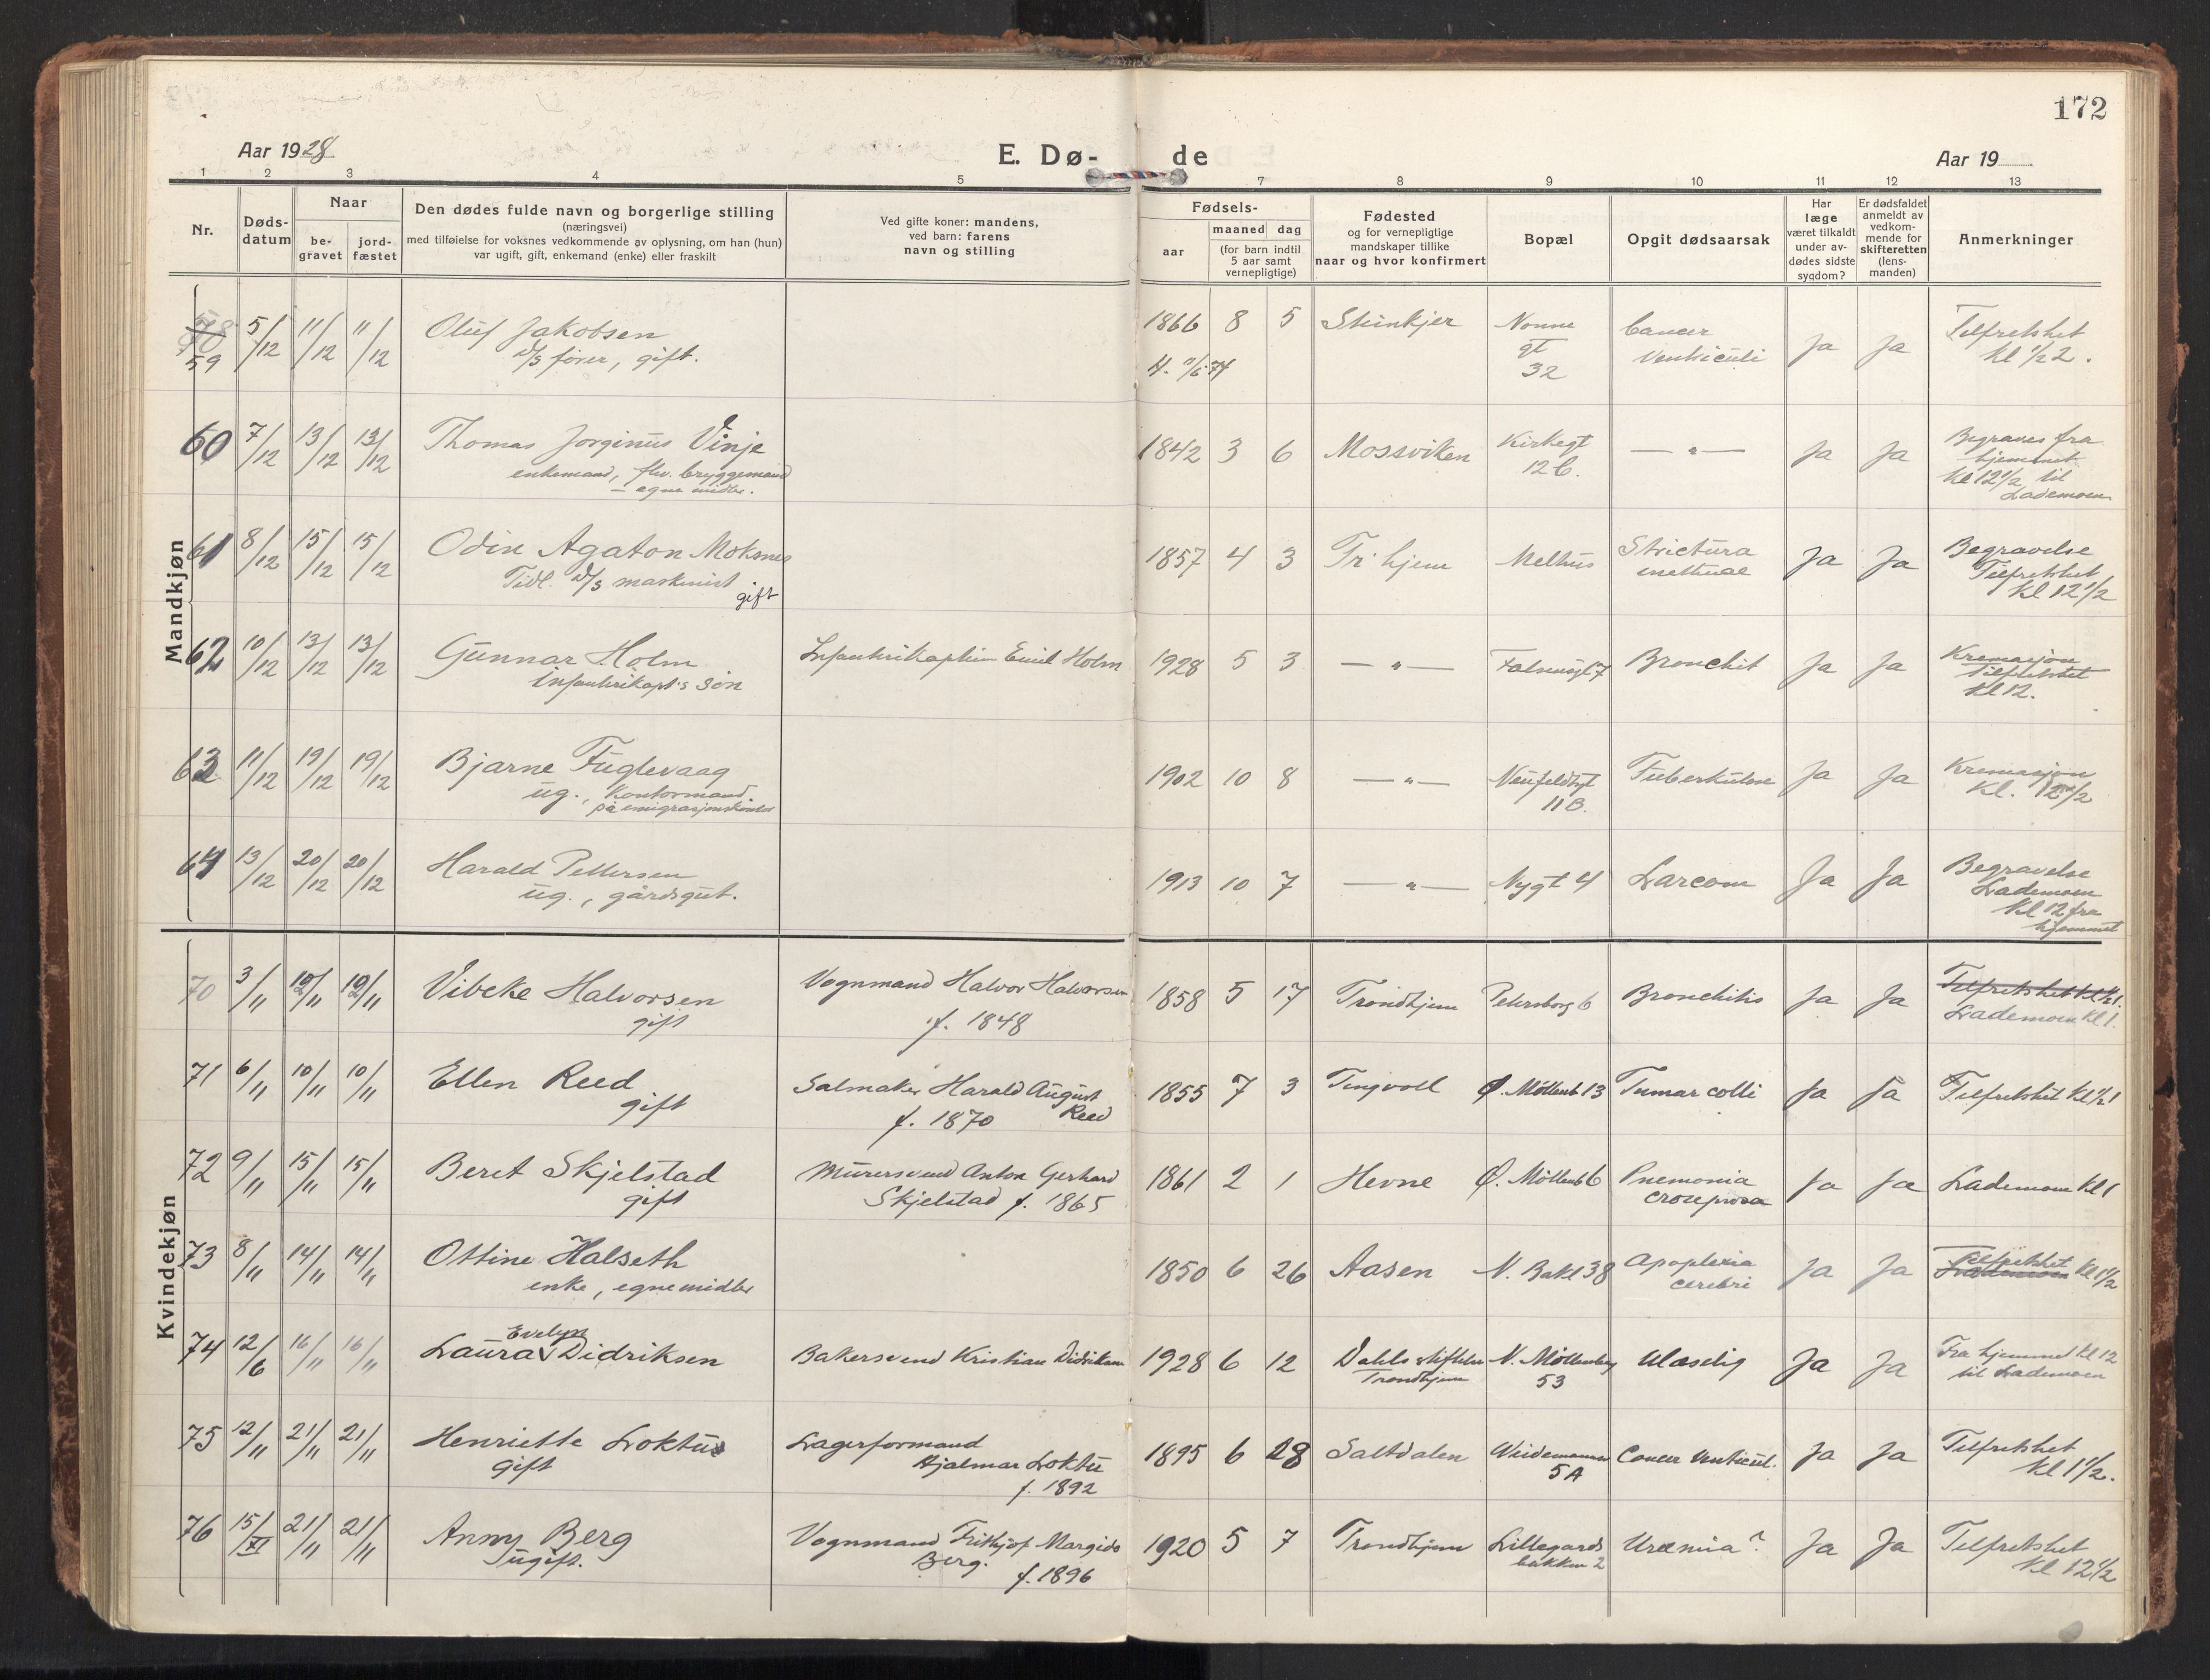 172
Aar 1928
E. Dø-de
Aar 19
1 2 3 4 5 7 8 9 10 11 12 13
Nr.
Døds-
datum
Naar
be-
gravet
jord-
fæstet
Den dødes fulde navn og borgerlige stilling
(næringsvei)
med tilføielse for voksnes vedkommende av oplysning, om han (hun)
var ugift, gift, enkemand (enke) eller fraskilt
Ved gifte koner: mandens,
ved barn: farens
navn og stilling
Fødsels-
aar
maaned dag
(for barn indtil
5 aar samt
vernepligtige)
Fødested
og for vernepligtige
mandskaper tillike
naar og hvor konfirmert
Bopæl
Opgit dødsaarsak
Har
læge
været tilkaldt
under av-
dødes sidste
sygdom?
Er dødsfaldet
anmeldt av
vedkom-
mende for
skifteretten
(lens-
manden)
Anmerkninger
Mandkjøn
59 5/12 11/12 11/12 Oluf Jakobsen 1866 8 5 Steinkjer Nonne Cancer Ja Ja Tilfretshet
D/S fører, gift. gt Ventriculi kl 1/2 2.
32
60 7/12 13/12 13/12 Thomas Jorginus Vinje 1842 3 6 Mossviken Kirkegt — " — Ja Ja Begraves fra
enkemand, fhv. bryggemand 12 b. hjemmet
— egne midler. kl 12 1/2 til
Lademoen
61 8/12 15/12 15/12 Odin Agaton Moksnes 1857 4 3 Tr.hjem Melhus Strictura Ja Ja Begravelse
Tidl. D/S maskinist Tilfretshet
gift kl 12 1/2
62 10/12 13/12 13/12 Gunnar Holm Infanterikaptein Emil Holm 1928 5 3 — " — Bronchit Ja Ja Kremasjon
Infanterikapt's søn Tilfretshet
kl 12.
63 11/12 19/12 19/12 Bjarne Fuglevaag 1902 10 8 — " — Tuberkulose Ja Ja Kremasjon
ug., Kontormand 11 B. kl. 12 1/2
på emigrasjonskontor
64 13/12 20/12 20/12 Harald Pettersen 1913 10 7 — " — Nygt 4 Sarcom Ja Ja Begravelse
ug., gårdsgut. Lademoen
kl 12 fra
hjemmet
Kvindekjøn
70 3/11 /11 /11 Vibeke Halvorsen Vognmand Halvor Halvorsen 1858 5 17 Trondhjem Petersborg 6 Bronchitis Ja Ja Tilfretshet kl 1/2 1.
gift f. 1848 Lademoen kl 1.
71 6/11 10/11 10/11 Ellen Reed Salmaker Harald August 1855 7 3 Tingvoll Ø. Møllenb 13 Tumor colli Ja Ja Tilfretshet kl 1/2 1
gift Reed
f. 1870
72 9/11 15/11 15/11 Beret Skjelstad Murersvend Anton Gerhard 1861 2 1 Hevne Ø. Møllenb 6 Pnemonia Ja Ja Lademoen kl 1
gift Skjelstad f. 1865
73 8/11 14/11 14/11 Ottine Halseth 1850 6 26 Aasen N. Bakl 38 Apoplexia Ja Ja Tilfretshet kl 1 1/2
enke, egne midler cerebri Lademoen
Evelyn
74 12/6 16/11 16/11 Laura Didriksen Bakersvend Kristian Didriksen 1928 6 12 Dahls stiftelse N. Møllenberg Ulæselig Ja Ja Fra hjemmet kl 12
Trondhjem 53 til Lademoen
75 12/11 21/11 21/11 Henriette Loktu Lagerformand 1895 6 28 Saltdalen Weidemanns Cancer Ventricul. Ja Ja Tilfretshet
gift Hjalmar Loktu 5A kl 1 1/2.
f. 1892
76 15/XI 21/11 21/11 Anny Berg Vognmand Frithjof Margido 1920 5 7 Trondhjem Lillegårds Uræmia? Ja Ja Tilfretshet
ugift. Berg. bakken 2 kl 12 1/2
f. 1896